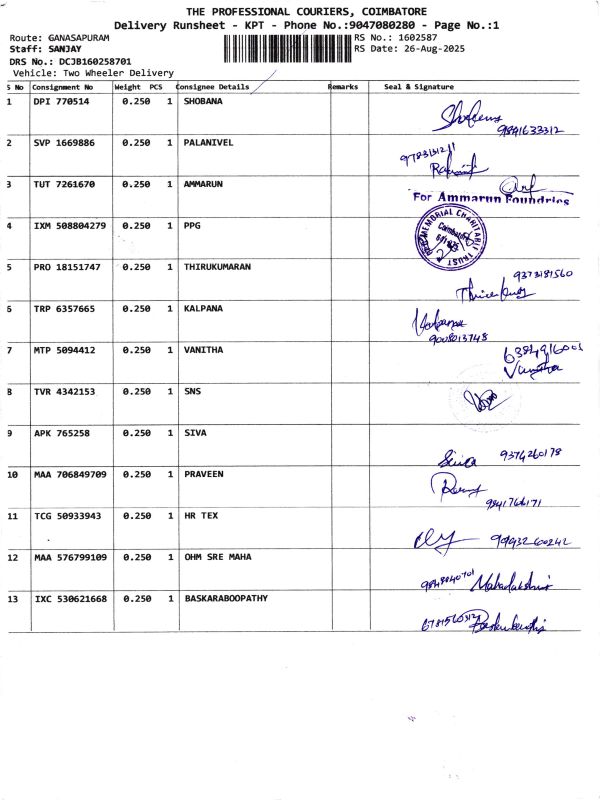 THE PROFESSIONAL COURIERS, COIMBATORE
Delivery Runsheet - KPT - Phone No.:9047080280 - Page No.:1
Route: GANASAPURAM RS No.: 1602587
Staff: SANJAY RS Date: 26-Aug-2025
DRS No.: DCJB160258701
Vehicle: Two Wheeler Delivery
S No Consignment No Weight PCS Consignee Details Remarks Seal & Signature
1 DPI 770514 0.250 1 SHOBANA
2 SVP 1669886 0.250 1 PALANIVEL
3 TUT 7261670 0.250 1 AMMARUN
For Ammarun Foundries
4 IXM 508804279 0.250 1 PPG
MEMORIAL CHARITABLE TRUST
5 PRO 18151747 0.250 1 THIRUKUMARAN
9373181560
6 TRP 6357665 0.250 1 KALPANA
Kalpana
9008013748
7 MTP 5094412 0.250 1 VANITHA
Vanitha
8 TVR 4342153 0.250 1 SNS
9 APK 765258 0.250 1 SIVA
Siva 9374260178
10 MAA 706849709 0.250 1 PRAVEEN
9841766171
11 TCG 50933943 0.250 1 HR TEX
12 MAA 576799109 0.250 1 OHM SRE MAHA
Mahadakshmi
13 IXC 530621668 0.250 1 BASKARABOOPATHY